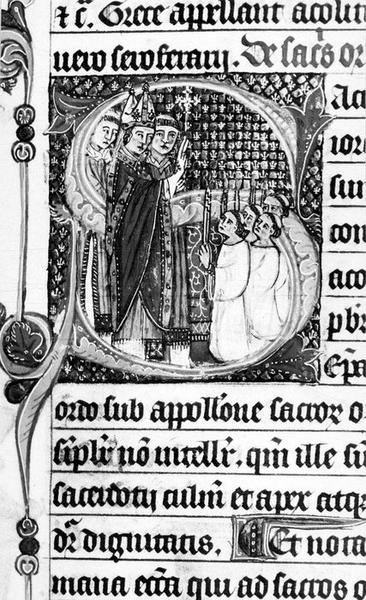 ⁊ c̄. Grece appellant acolit
uero seroferarij. De sac̄s or
Acr
ior
sun
con
aco
pb̄r
Ep̄a
ordo sub appoll̄one sacroꝝ o
siplr̄ nō intellr̄. qm̄ ille su
sacerdotij culm̄ et apex atq
dr̄ dignitatis. Et nota
mana ecc̄a qui ad sacros o